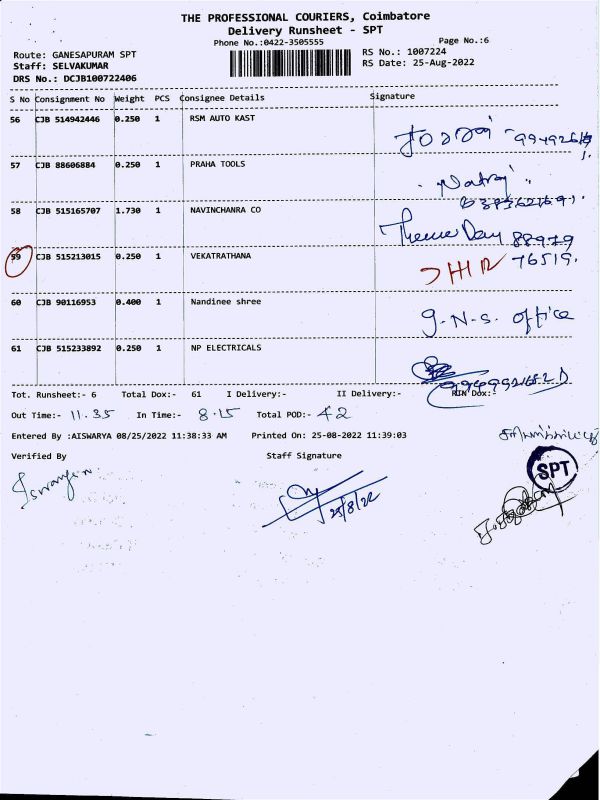 THE PROFESSIONAL COURIERS, Coimbatore
Delivery Runsheet - SPT
Phone No.:0422-3505555 Page No.:6
Route: GANESAPURAM SPT RS No.: 1007224
Staff: SELVAKUMAR RS Date: 25-Aug-2022
DRS No.: DCJB100722406
S No Consignment No Weight PCS Consignee Details Signature
56 CJB 514942446 0.250 1 RSM AUTO KAST
57 CJB 88606884 0.250 1 PRAHA TOOLS
Natraj
58 CJB 515165707 1.730 1 NAVINCHANRA CO
88979
59 CJB 515213015 0.250 1 VEKATRATHANA
76519.
60 CJB 90116953 0.400 1 Nandinee shree
G.N.S. office
61 CJB 515233892 0.250 1 NP ELECTRICALS
Tot. Runsheet:- 6 Total Dox:- 61 I Delivery:- II Delivery:- RTN Dox:-
Out Time:- 11.35 In Time:- 8.15 Total POD:- 42
Entered By :AISWARYA 08/25/2022 11:38:33 AM Printed On: 25-08-2022 11:39:03
Verified By Staff Signature
SPT
25/8/22